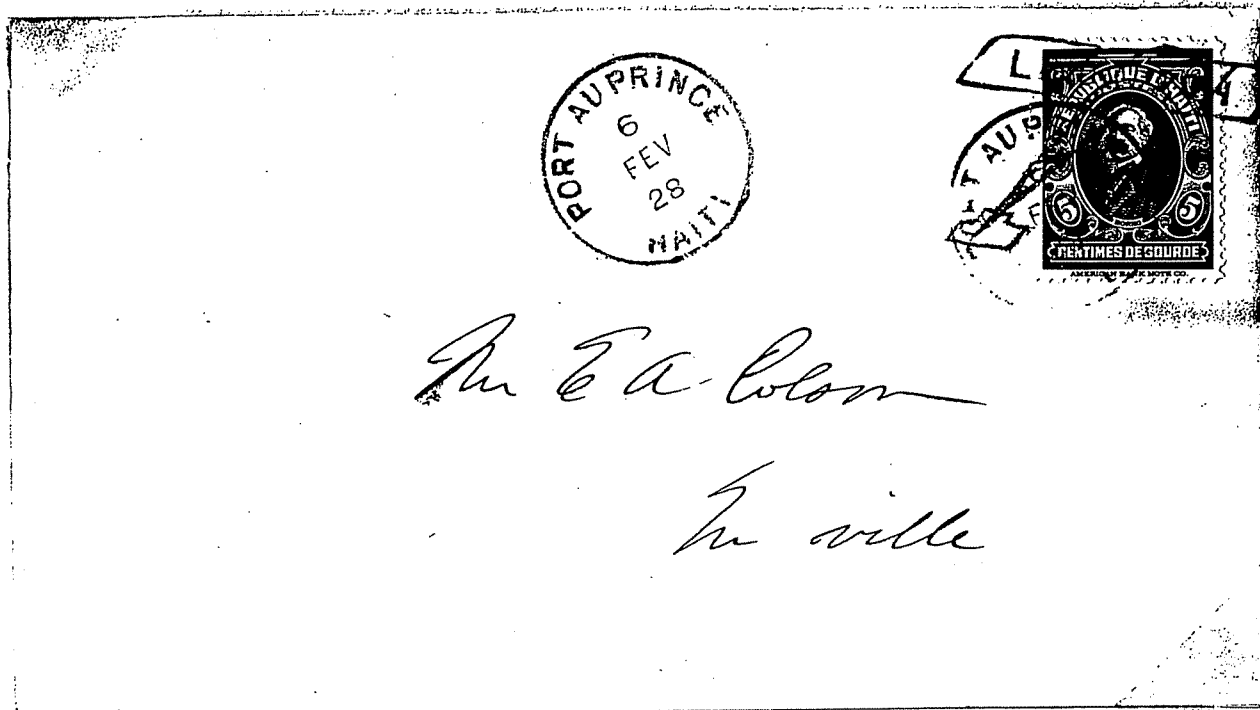 PORT AU PRINCE
6
FEV
28
HAITI
REPUBLIQUE D'HAITI
5 5
CENTIMES DE GOURDE
AMERICAN BANK NOTE CO.
T AU P
Mr E A. Colom
En ville